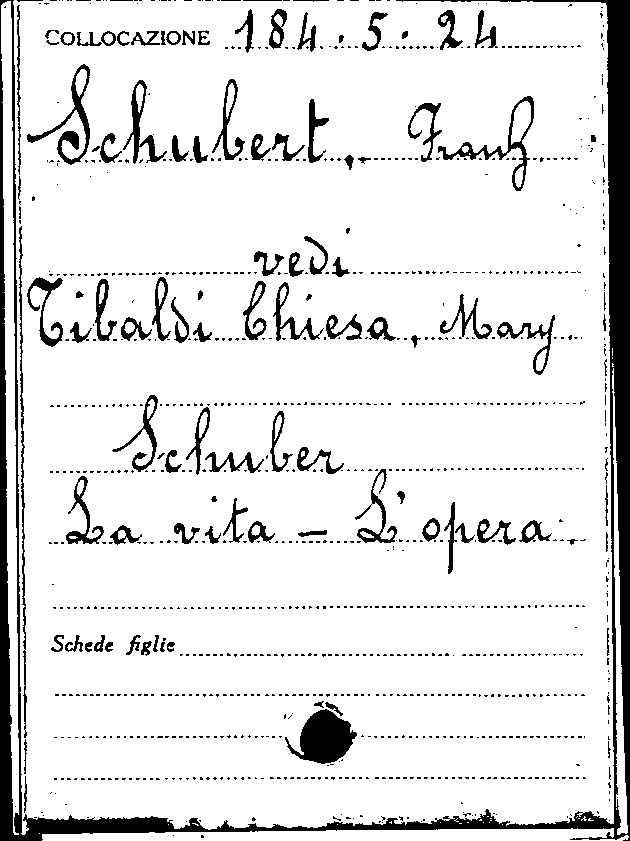 COLLOCAZIONE 184.5.24
Schubert, Franz
vedi
Tibaldi Chiesa, Mary
Schuber
La vita - L'opera.
Schede figlie